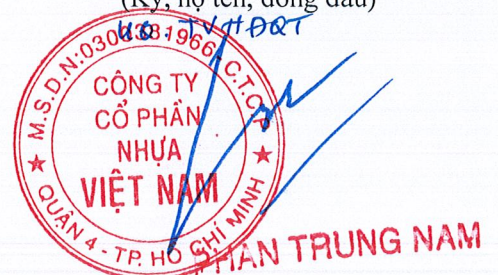 (Ký, họ tên, đóng dấu)
TVHĐQT
M.S.D.N:0300381966 C.T.C.P
CÔNG TY
CỔ PHẦN
NHỰA
VIỆT NAM
QUẬN 4 - TP. HỒ CHÍ MINH
PHAN TRUNG NAM